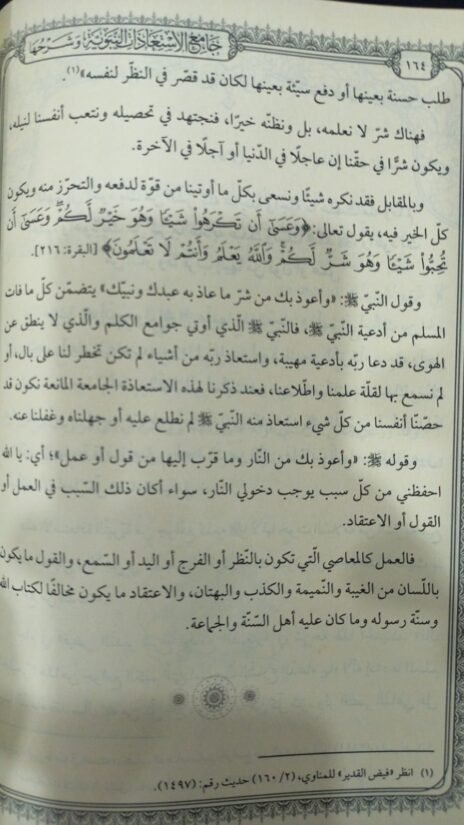 جامع الاستعاذات النبوية وشرحها
١٦٤
طلب حسنة بعينها أو دفع سيّئة بعينها لكان قد قصّر في النظّر لنفسه»(١).
فهناك شرّ لا نعلمه، بل ونظنّه خيرًا، فنجتهد في تحصيله ونتعب أنفسنا لنيله،
ويكون شرًّا في حقّنا إن عاجلًا في الدّنيا أو آجلًا في الآخرة.
وبالمقابل فقد نكره شيئًا ونسعى بكلّ ما أوتينا من قوّة لدفعه والتحرّز منه ويكون
كلّ الخير فيه، يقول تعالى: ﴿وَعَسَىٰٓ أَن تَكْرَهُوا۟ شَيْـًٔا وَهُوَ خَيْرٌ لَّكُمْ وَعَسَىٰٓ أَن
تُحِبُّوا۟ شَيْـًٔا وَهُوَ شَرٌّ لَّكُمْ وَٱللَّهُ يَعْلَمُ وَأَنتُمْ لَا تَعْلَمُونَ﴾ [البقرة: ٢١٦].
وقول النّبيّ ﷺ: «وأعوذ بك من شرّ ما عاذ به عبدك ونبيّك» يتضمّن كلّ ما فات
المسلم من أدعية النّبيّ ﷺ، فالنّبيّ ﷺ الّذي أوتي جوامع الكلم والّذي لا ينطق عن
الهوى، قد دعا ربّه بأدعية مهيبة، واستعاذ ربّه من أشياء لم تكن تخطر لنا على بال، أو
لم نسمع بها لقلّة علمنا واطّلاعنا، فعند ذكرنا لهذه الاستعاذة الجامعة المانعة نكون قد
حصّنّا أنفسنا من كلّ شيء استعاذ منه النّبيّ ﷺ لم نطلع عليه أو جهلناه وغفلنا عنه.
وقوله ﷺ: «وأعوذ بك من النّار وما قرّب إليها من قول أو عمل»؛ أي: يا الله
احفظني من كلّ سبب يوجب دخولي النّار، سواء أكان ذلك السّبب في العمل أو
القول أو الاعتقاد.
فالعمل كالمعاصي الّتي تكون بالنّظر أو الفرج أو اليد أو السّمع، والقول ما يكون
باللّسان من الغيبة والنّميمة والكذب والبهتان، والاعتقاد ما يكون مخالفًا لكتاب الله
وسنّة رسوله وما كان عليه أهل السّنّة والجماعة.
(١) انظر «فيض القدير» للمناوي، (٢/ ١٦٠) حديث رقم: (١٤٩٧).